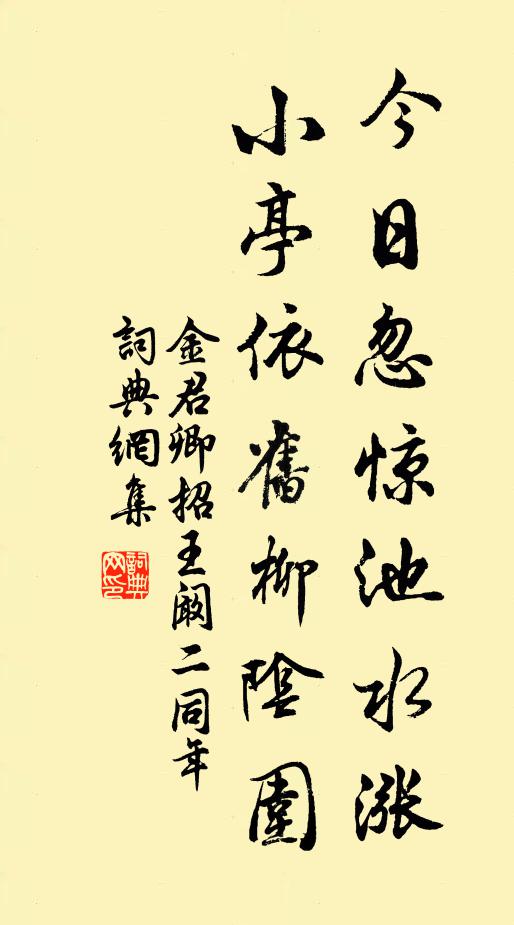 今日忽惊池水涨
小亭依舊柳陰圍
金君卿招王阚二同年
詞典網集
詞典网印